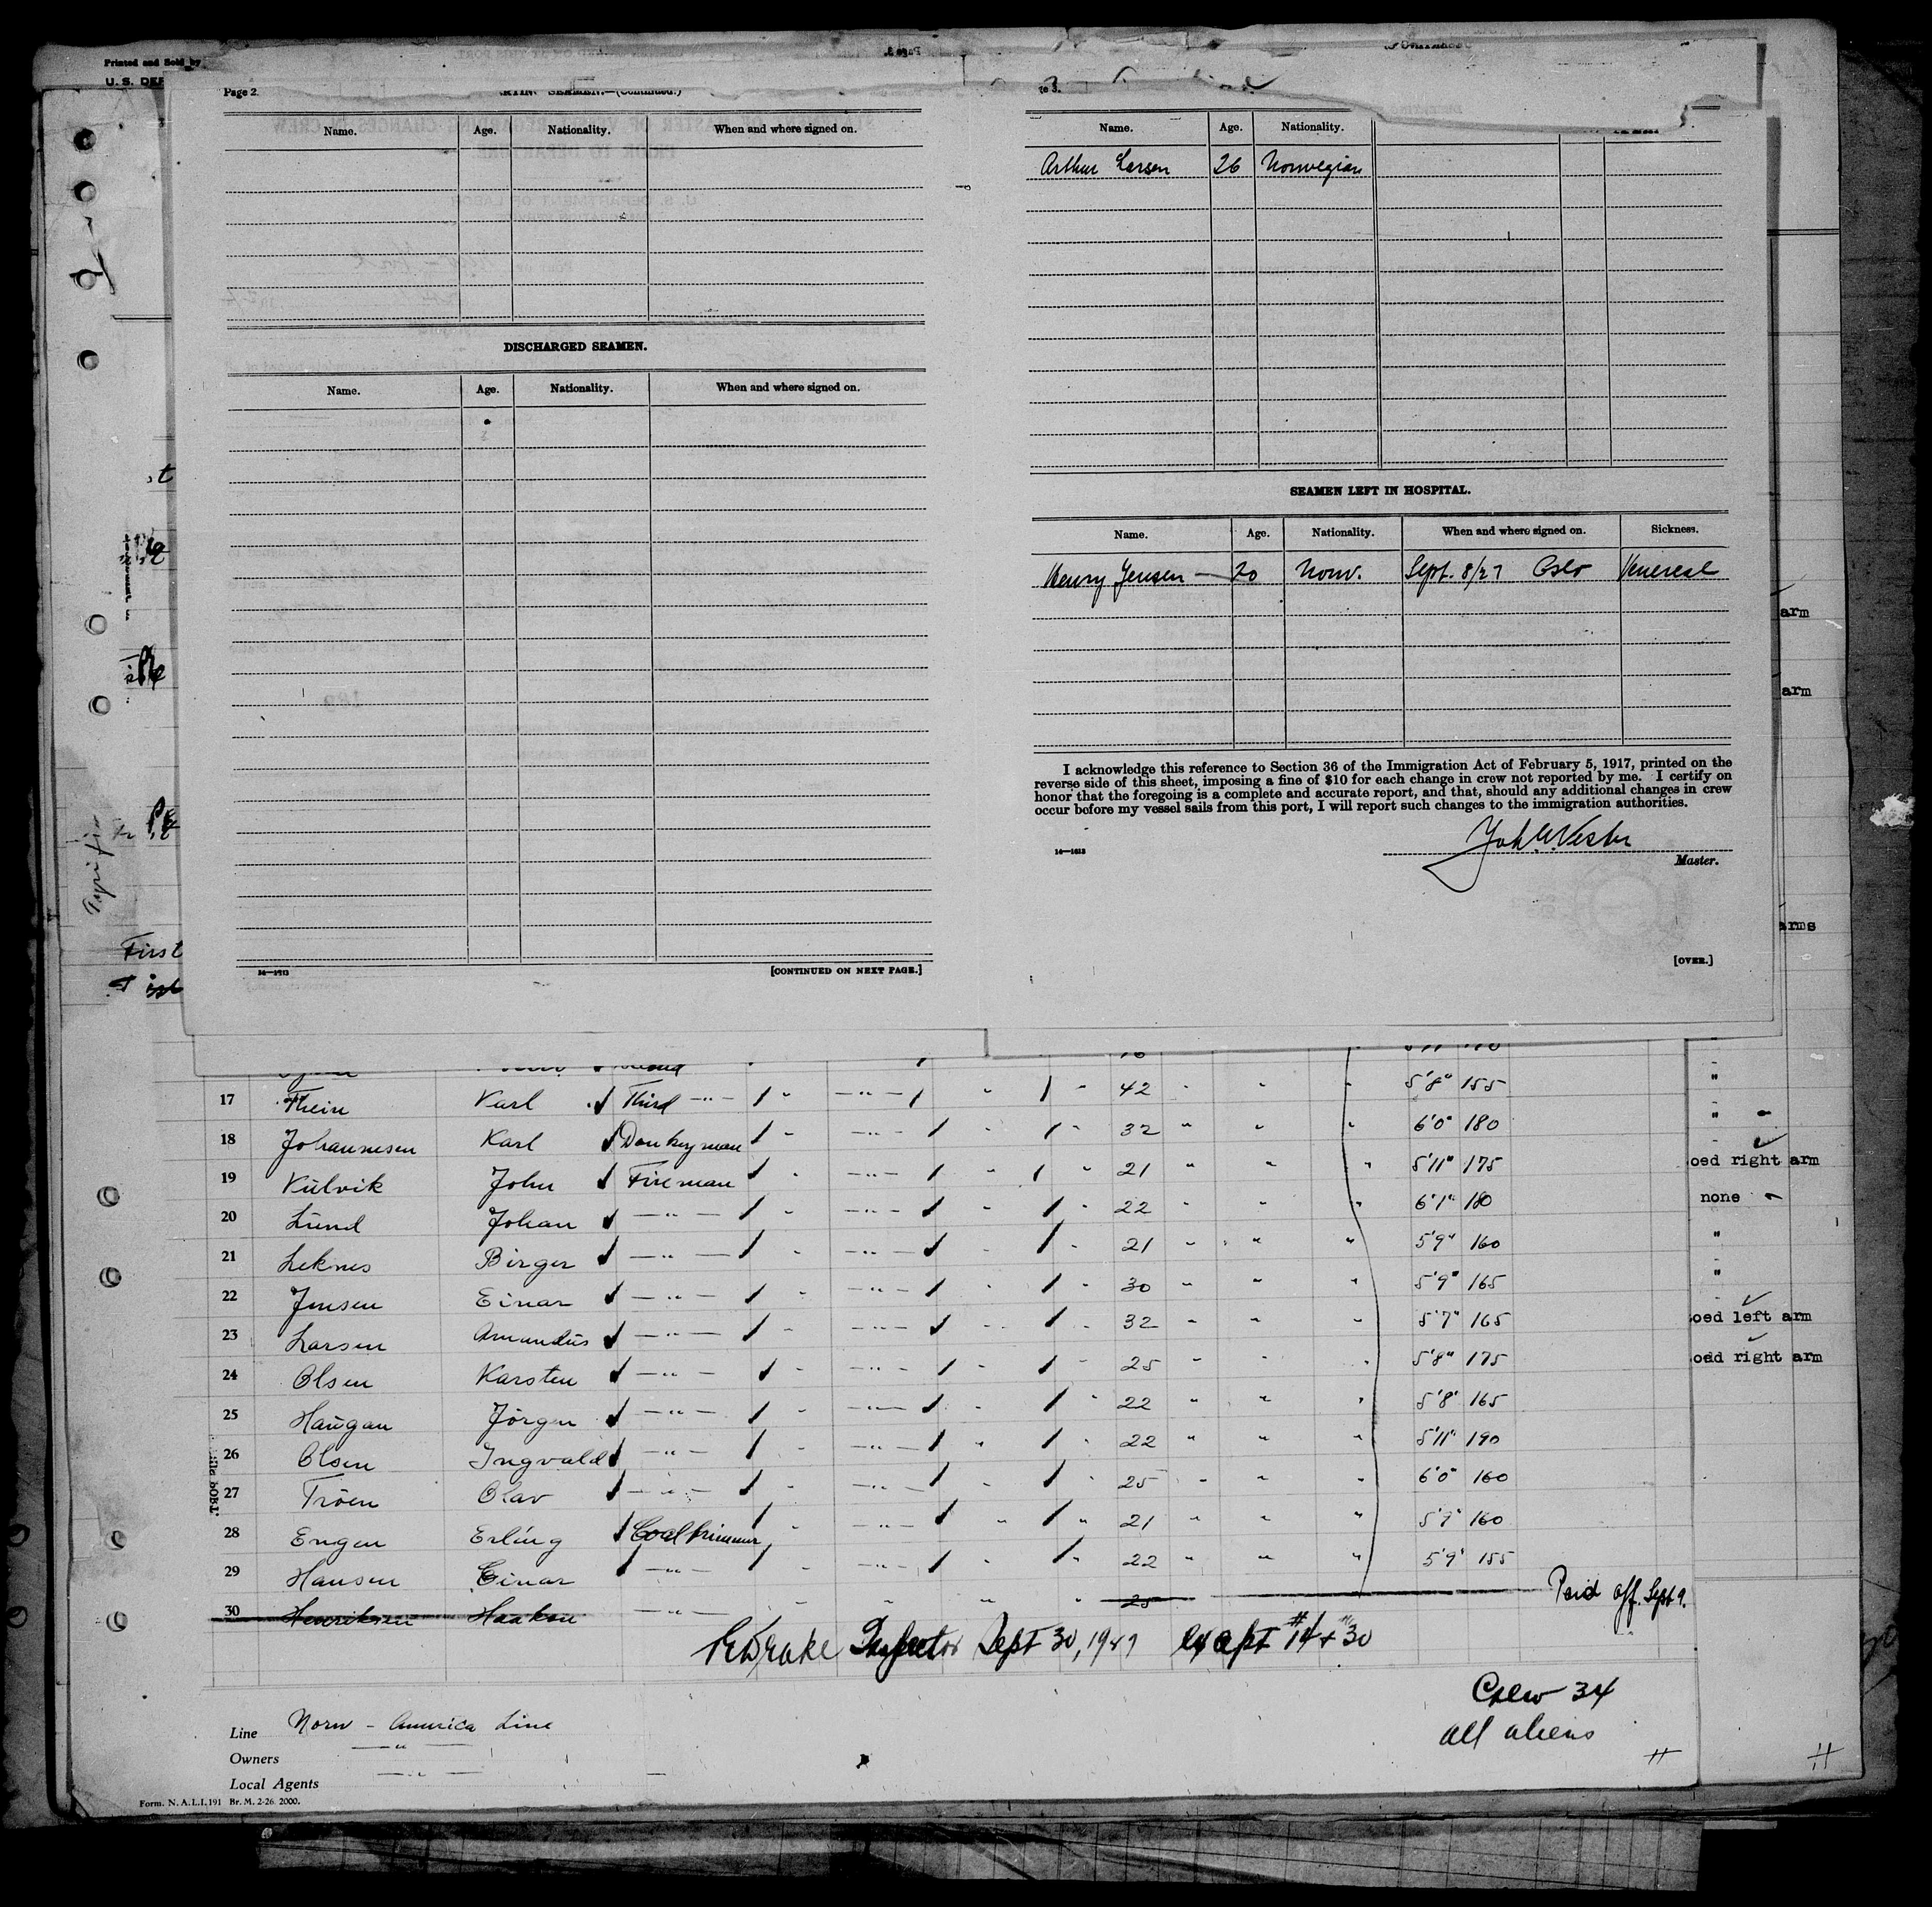 Printed and Sold by
U. S. DEP
Page 2.
SEAMEN.—(Continued.)
Name. Age. Nationality. When and where signed on.
DISCHARGED SEAMEN.
Name. Age. Nationality. When and where signed on.
[CONTINUED ON NEXT PAGE.]
3.
Name. Age. Nationality.
Arthur Larsen 26 Norwegian
SEAMEN LEFT IN HOSPITAL.
Name. Age. Nationality. When and where signed on. Sickness.
Henry Jensen — 20 Norw. Sept. 8/27 Oslo Venereal
I acknowledge this reference to Section 36 of the Immigration Act of February 5, 1917, printed on the
reverse side of this sheet, imposing a fine of $10 for each change in crew not reported by me. I certify on
honor that the foregoing is a complete and accurate report, and that, should any additional changes in crew
occur before my vessel sails from this port, I will report such changes to the immigration authorities.
Master.
[OVER.]
First
arm
arm
arms
17 Thein Karl Third — " — " 42 " " " 5'8" 155 "
18 Johannesen Karl Donkeyman " — " — " " 32 " " " 6'0" 180 "
19 Kulvik John Fireman " — " — " " 21 " " " 5'11" 175 oed right arm
20 Lund Johan — " — " — " — " " 22 " " " 6'1" 180 none
21 Leknes Birger — " — " — " — " " 21 " " " 5'9" 160 "
22 Jensen Einar — " — " — " — " " 30 " " " 5'9" 165 "
23 Larsen Amandus — " — " — " — " " 32 " " " 5'7" 165 oed left arm
24 Olsen Karsten — " — " — " — " " 25 " " " 5'8" 175 oed right arm
25 Haugan Jörgen — " — " — " — " " 22 " " " 5'8" 165
26 Olsen Ingvald — " — " — " — " " 22 " " " 5'11" 190
27 Tröen Olav — " — " — " — " " 25 " " " 6'0" 160
28 Engen Erling Coaltrimmer " — " — " " 21 " " " 5'9" 160
29 Hansen Einar — " — " — " — " " 22 " " " 5'9" 155
30 Henriksen Haakon — " — " " " " 25 Paid off. Sept 9.
Drake Inspector Sept 30, 1927 except #14 + #30
Crew 34
all aliens
Line Norw - America Line
Owners — " —
Local Agents — " —
Form. N. A. L. I. 191 Br. M. 2-26. 2000.